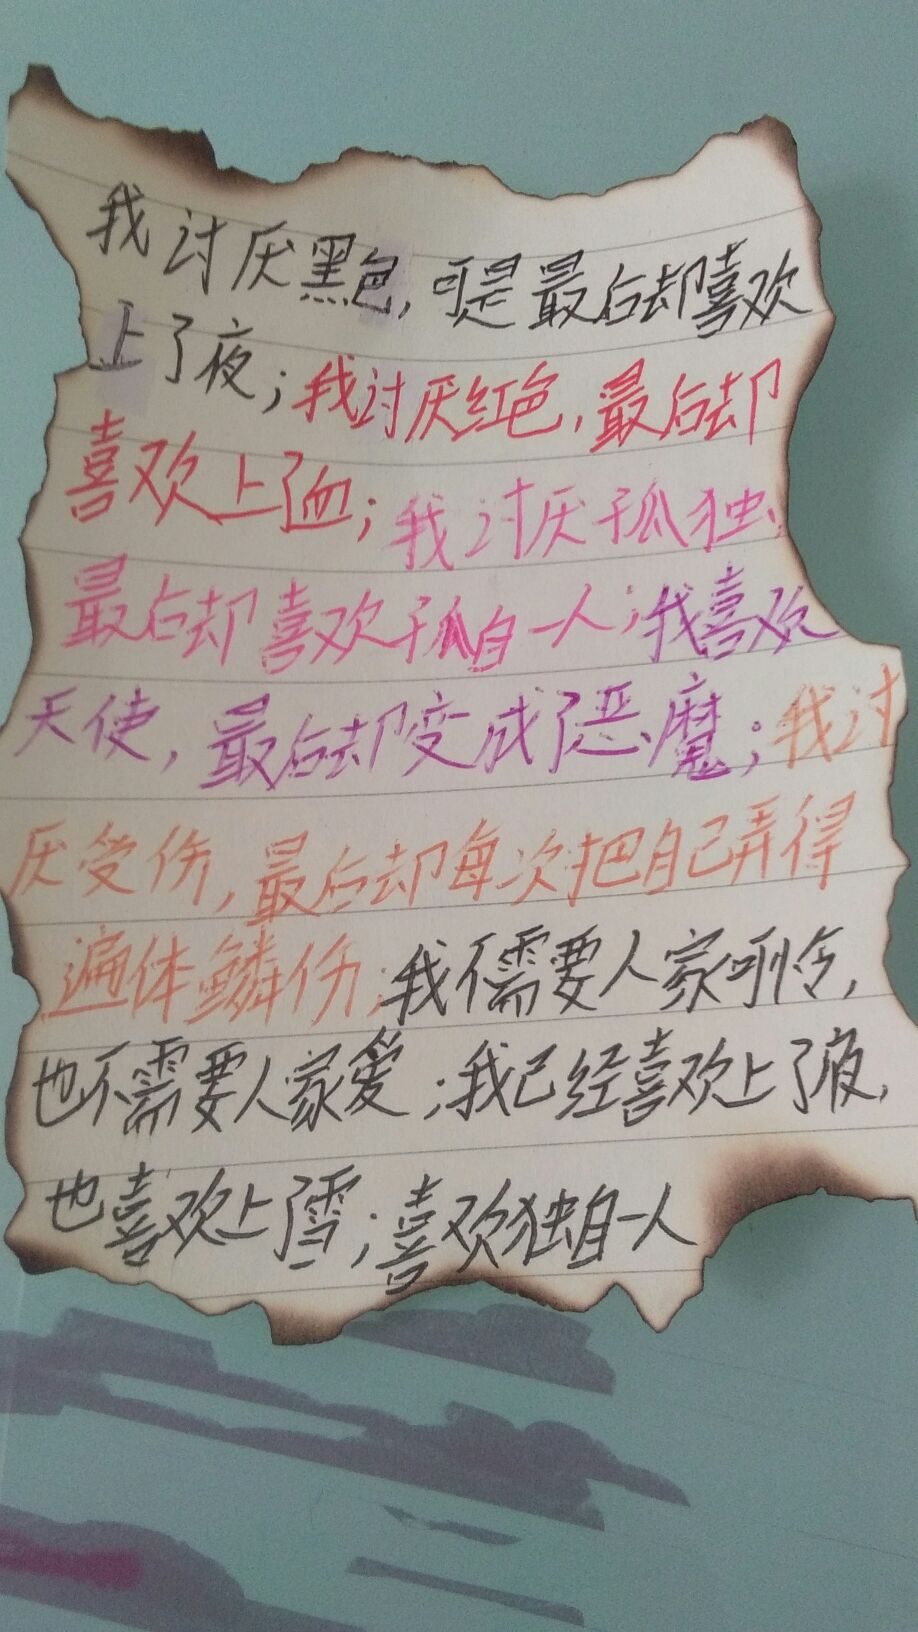 我讨厌黑色,可是最后却喜欢
上了夜;我讨厌红色,最后却
喜欢上了血;我讨厌孤独,
最后却喜欢孤自一人;我喜欢
天使,最后却变成了恶魔;我讨
厌受伤,最后却每次把自己弄得
遍体鳞伤;我不需要人家
也不需要人家爱;我已经喜欢上了夜,
也喜欢上了雪;喜欢独自一人